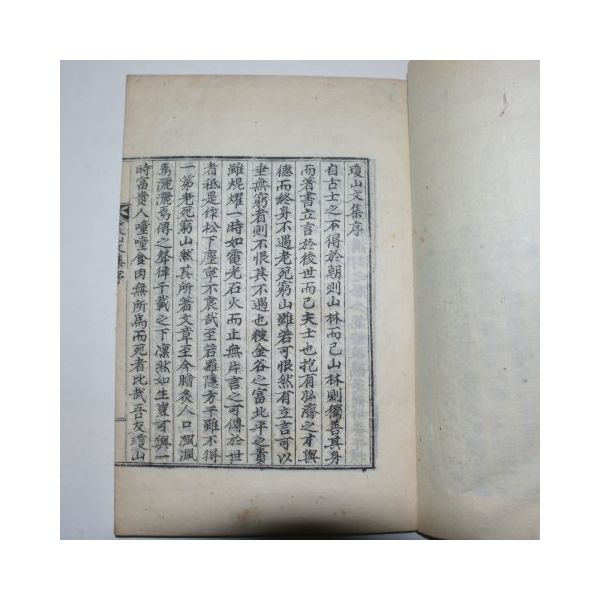 瓊山文集序
自古士之不得於朝則山林而已山林則獨善其身
而著書立言於後世而已夫士也抱有弘濟之才與
德而終身不遇老死窮山雖若可恨然有立言可以
垂無窮者則不恨其不遇也彼金谷之富北平之貴
雖焜燿一時如電光石火而止無片言之可傳於世
者秪是作松下塵寧不哀哉至若羅隱方干雖不得
一第老死窮山然其所著文章至今膾炙人口颯颯
焉灑灑焉傳之聲律千載之下凜然如生豈可與一
時富貴人噇噇食肉無所爲而死者比哉吾友瓊山
山文集序